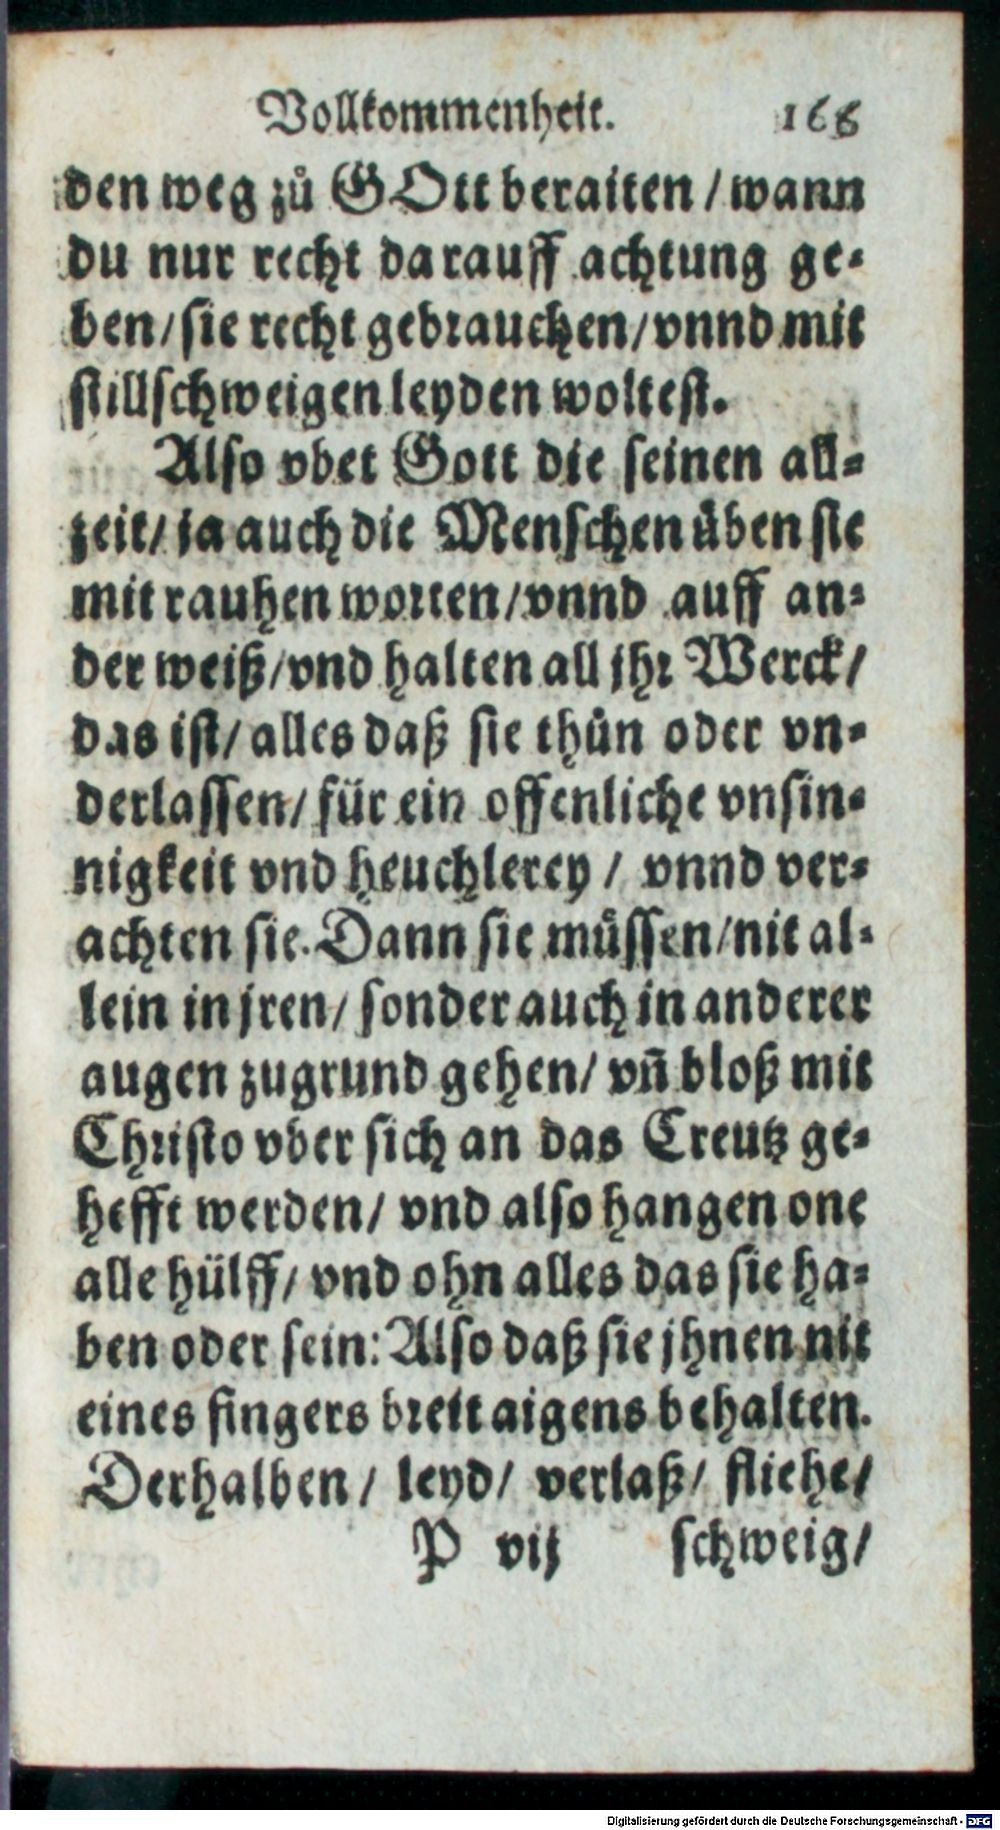 Vollkommenheit. 168
den weg zů GOtt beraiten / wann
du nur recht darauff achtung ge-
ben / sie recht gebrauchen / vnnd mit
stillschweigen leyden woltest.
Also vbet Gott die seinen all-
zeit / ja auch die Menschen üben sie
mit rauhen worten / vnnd auff an-
der weiß / vnd halten all jhr Werck /
das ist / alles daß sie thůn oder vn-
derlassen / für ein offenliche vnsin-
nigkeit vnd heuchlerey / vnnd ver-
achten sie. Dann sie müssen / nit al-
lein in jren / sonder auch in anderer
augen zugrund gehen / vñ bloß mit
Christo vber sich an das Creutz ge-
hefft werden / vnd also hangen one
alle hülff / vnd ohn alles das sie ha-
ben oder sein: Also daß sie jhnen nit
eines fingers breit aigens behalten.
Derhalben / leyd / verlaß / fliehe /
P vij schweig /
Digitalisierung gefördert durch die Deutsche Forschungsgemeinschaft - DFG